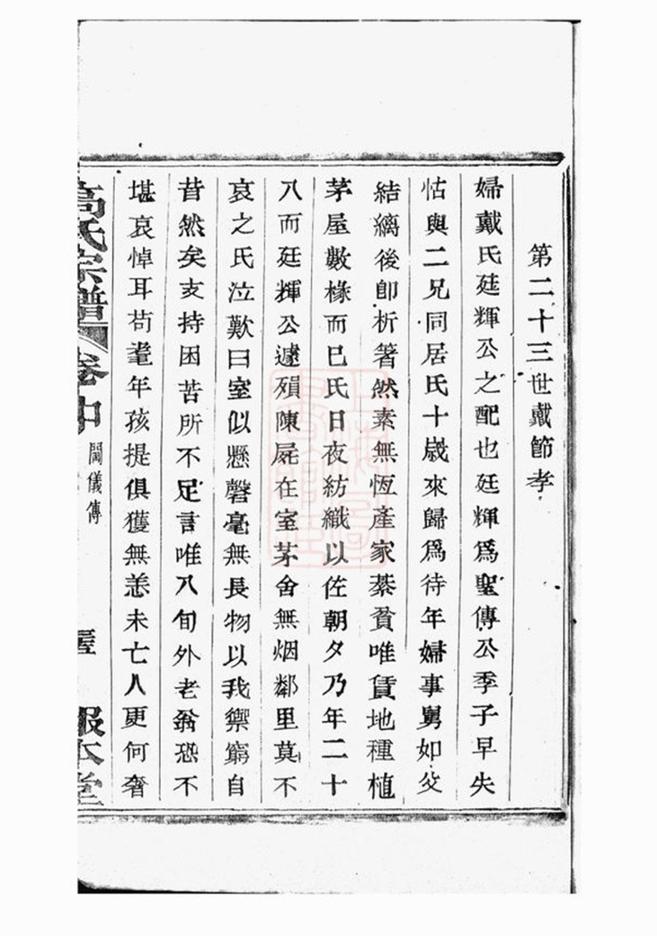 第二十三世戴節孝
婦戴氏廷輝公之配也廷輝爲聖傳公季子早失
怙與二兄同居氏十歲來歸爲待年婦事舅如父
結縭後卽析箸然素無恆產家綦貧唯賃地種植
茅屋數椽而已氏日夜紡織以佐朝夕乃年二十
八而廷輝公遽殞陳屍在室茅舍無烟鄰里莫不
哀之氏泣歎曰室似懸磬毫無長物以我禦窮自
昔然矣支持困苦所不足言唯八旬外老翁恐不
堪哀悼耳苟耄年孩提俱獲無恙未亡人更何奢
高氏宗譜 卷中 閫儀傳 報本堂